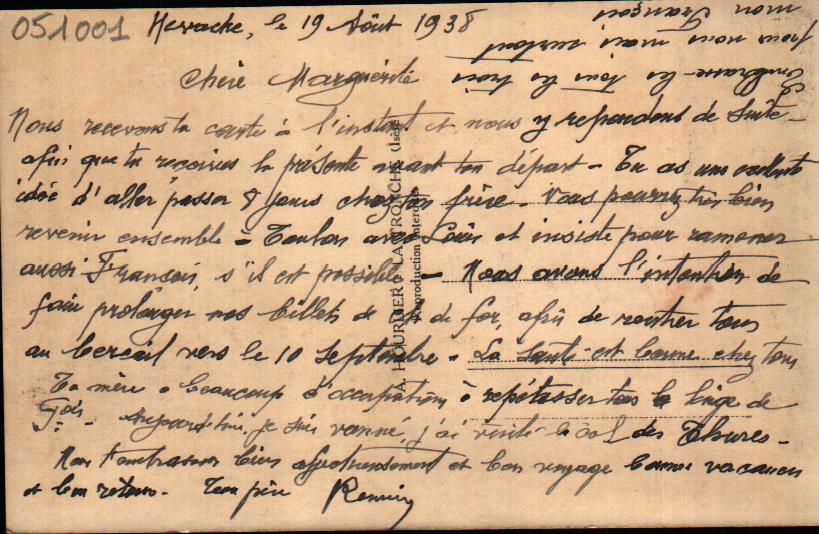 051001 Nevache, le 19 Août 1938
Chère Marguerite
Nous recevons ta carte à l'instant et nous y repondons de suite
afin que tu reçoives la présente avant ton départ - Tu as une excellente
idée d'aller passer 8 jours chez ton frère - Vous pourrez très bien
revenir ensemble à Toulon avec Louis et insiste pour ramener
aussi François, s'il est possible - Nous avons l'intention de
faire prolonger nos billets de ch de fer, afin de rentrer tous
au bercail vers le 10 Septembre - La santé est bonne chez tous
Ta mère a beaucoup d'occupations à repétasser tous le linge de
Aujourd'hui, je suis vanné, j'ai visité le col des Thures -
Nous t'embrassons bien affectueusement et bon voyage bonnes vacances
et bon retour - Ton père Remuy
embrasse-les tous les trois
pour nous mais surtout
mon François
A. HOURDIER LA TRONCHE (Isère)
Reproduction interdite